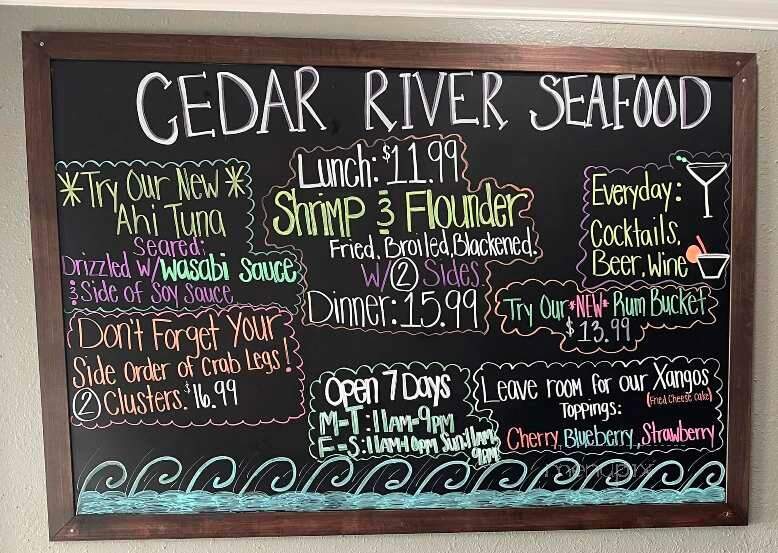 CEDAR RIVER SEAFOOD
*Try Our New*
Ahi Tuna
Seared;
Drizzled w/wasabi sauce
& Side of Soy Sauce
Lunch: $11.99
Shrimp & Flounder
Fried, Broiled, Blackened.
W/ 2 Sides
Dinner: 15.99
Everyday:
Cocktails,
Beer, Wine
Try Our *NEW* Rum Bucket
$13.99
Don't Forget Your
Side Order of Crab Legs!
2 Clusters: $16.99
Open 7 Days
M-T: 11AM-9PM
F-S: 11AM-10PM Sun: 11AM-
9PM
Leave room for our Xangos
(Fried Cheese Cake)
Toppings:
Cherry, Blueberry, Strawberry